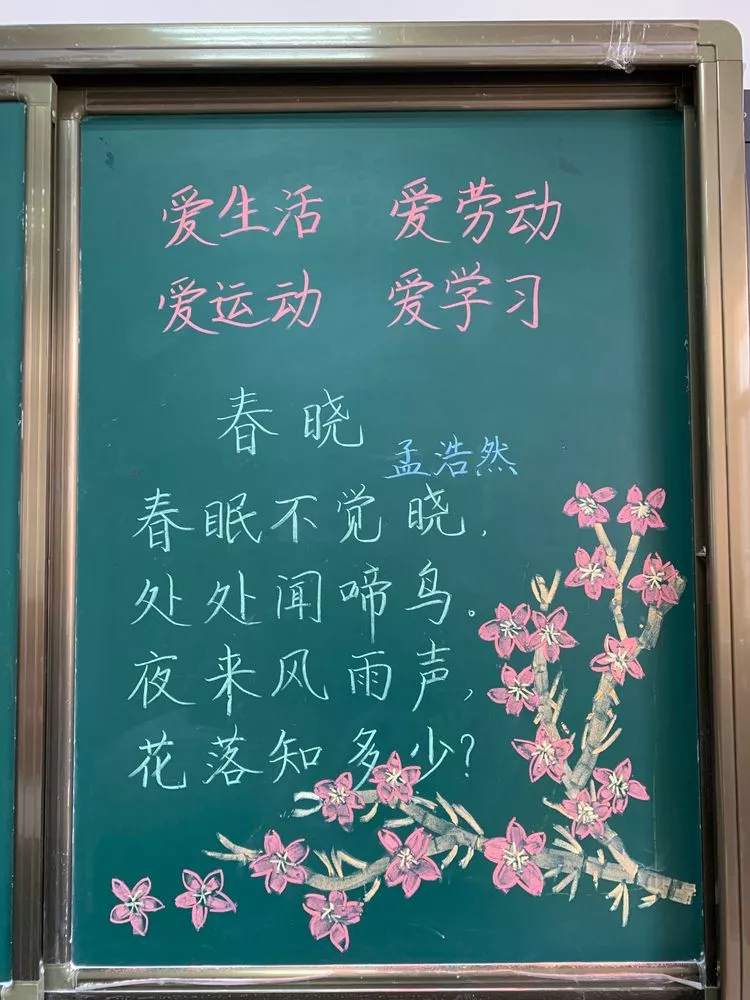 爱生活 爱劳动
爱运动 爱学习
春晓
孟浩然
春眠不觉晓,
处处闻啼鸟。
夜来风雨声,
花落知多少?